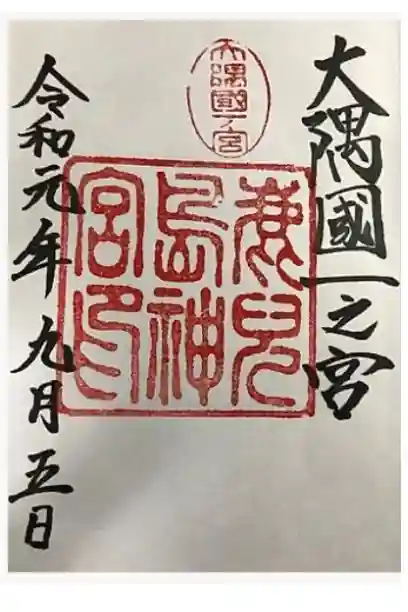 大隅國一之宮
大隅國一ノ宮
鹿兒
島神
宮印
令和元年九月五日